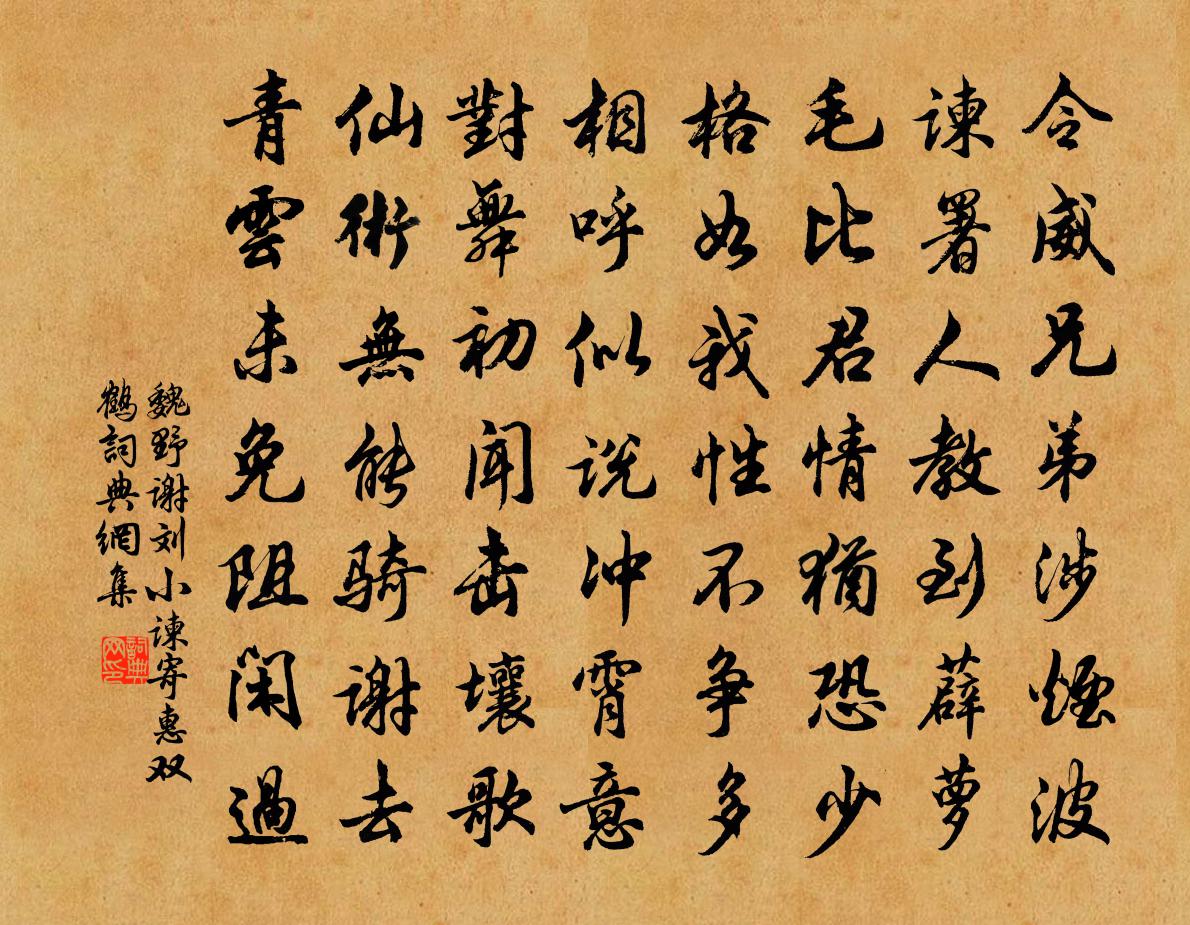 令威兄弟涉煙波
諫署人教到薜萝
毛比君情猶恐少
格如我性不争多
相呼似说冲霄意
對舞初闻击壤歌
仙術無能骑谢去
青雲未免阻闲過
魏野谢刘小諫寄惠双
鹤詞典網集
詞典网印